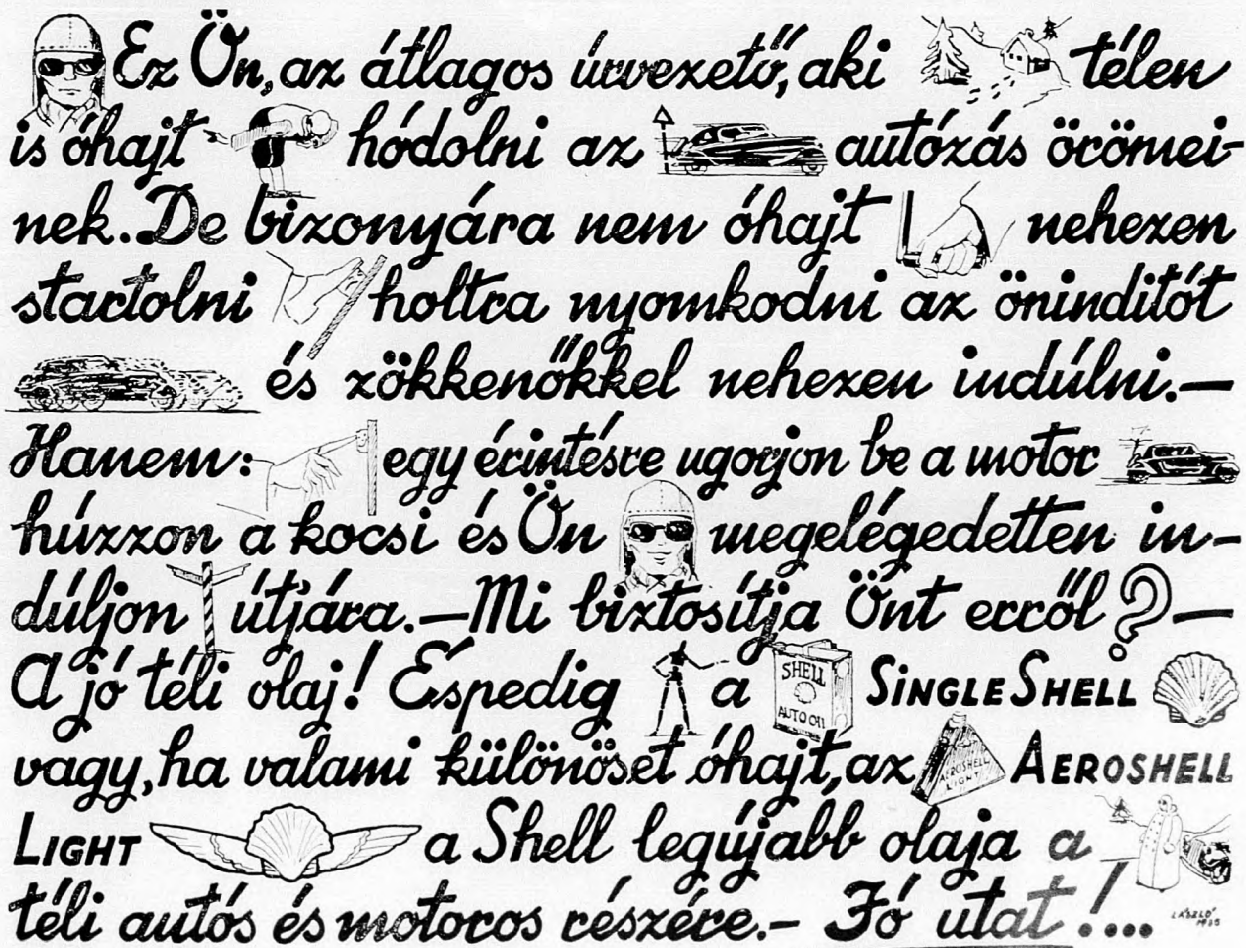 Ez Ön, az átlagos úrvezető, aki télen
is óhajt hódolni az autózás örömei-
nek.. De bizonyára nem óhajt nehezen
startolni holtra nyomkodni az önindítót
és zökkenőkkel nehezen indúlni.—
Hanem: egy érintésre ugorjon be a motor
húzzon a kocsi és Ön megelégedetten in-
dúljon útjára.—Mi biztosítja Önt erről?—
A jó téli olaj! Éspedig a SHELL AUTO OIL SINGLE SHELL
vagy, ha valami különöset óhajt, az AEROSHELL LIGHT AEROSHELL
LIGHT a Shell legújabb olaja a
téli autós és motoros részére.— Jó utat!....
LÁSZLÓ 1935